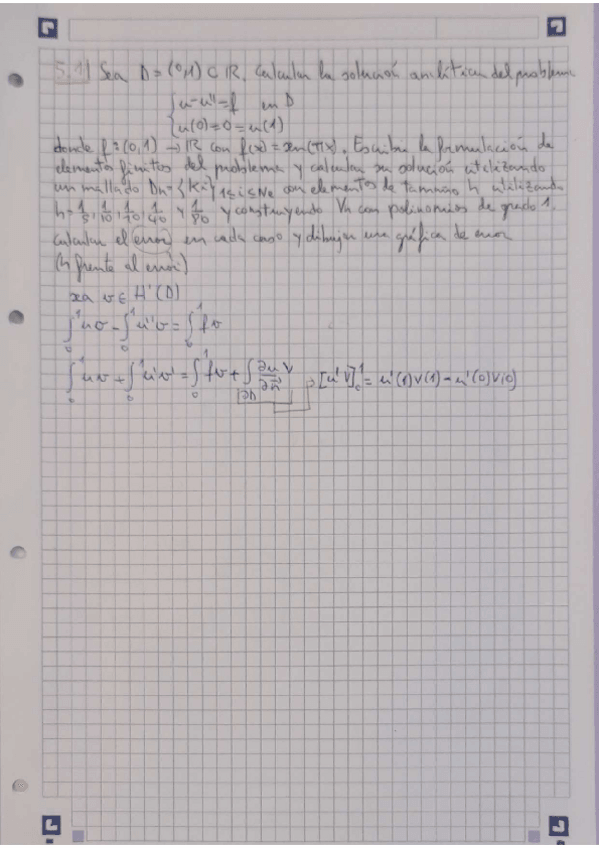 5.1) Sea D = (0,1) ⊂ ℝ. Calcular la solución analítica del problema
{ u - u'' = f en D
{ u(0) = 0 = u(1)
donde f: (0,1) → ℝ con f(x) = sen(πx). Escribir la formulación de
elementos finitos del problema y calcular su solución utilizando
un mallado Dh = {Ki} 1≤i≤Ne con elementos de tamaño h utilizando
h = 1/5, 1/10, 1/20, 1/40 y 1/80 y construyendo Vh con polinomios de grado 1.
Calcular el error en cada caso y dibujar una gráfica de error
(h frente al error)
sea v ∈ H¹(D)
∫₀¹ uv - ∫₀¹ u''v = ∫₀¹ fv
∫₀¹ uv + ∫₀¹ u'v' = ∫₀¹ fv + ∫∂D ∂u/∂n v → [u'v]₀¹ = u'(1)v(1) - u'(0)v(0)